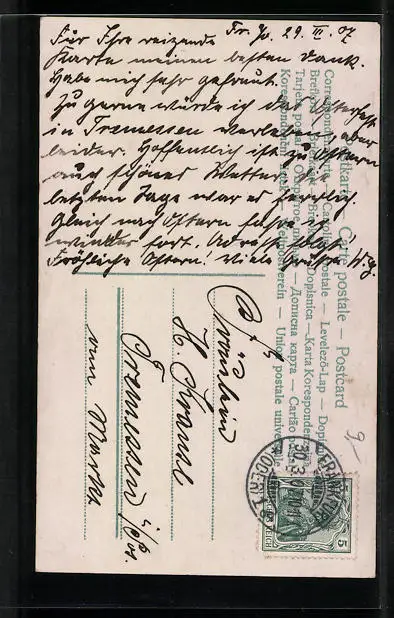 Fr. 29. III. 07
Für Ihre reizende
Karte meinen besten Dank.
Habe mich sehr gefreut.
Zu gerne würde ich das Osterfest
in Tremessen verleben, aber
leider. Hoffentlich ist zu Ostern
auch schönes Wetter
letzten Tage war es herrlich.
Gleich nach Ostern fahre ich
wieder fort. Adresse folgt.
Fröhliche Ostern! Viele Grüße
Postkarte — Carte postale — Postcard
Correspondenzkarte — Cartolina postale — Levelező-Lap — Dopisnice
Briefkaart — Brevkort — Dopisnica — Karta Korespondencyjna
Tarjeta postal — Открытое письмо — Дописна карта — Cartão postal
Korespondenční lístek — Weltpostverein — Union postale universelle
Fräulein
H.
Tremessen i/Pos.
am Markt
FRANKFURT
(ODER)
30.3
5